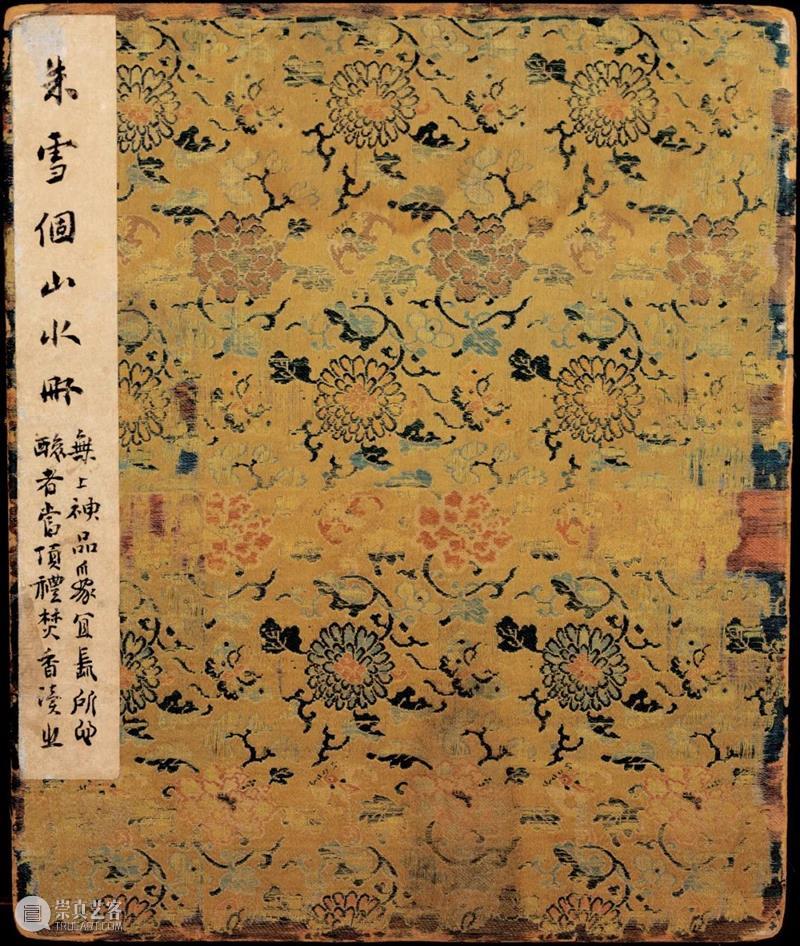 朱雪個山水冊
無上神品宜長所
者當頂禮焚香讀之
崇真艺客
TRUE-ART.COM